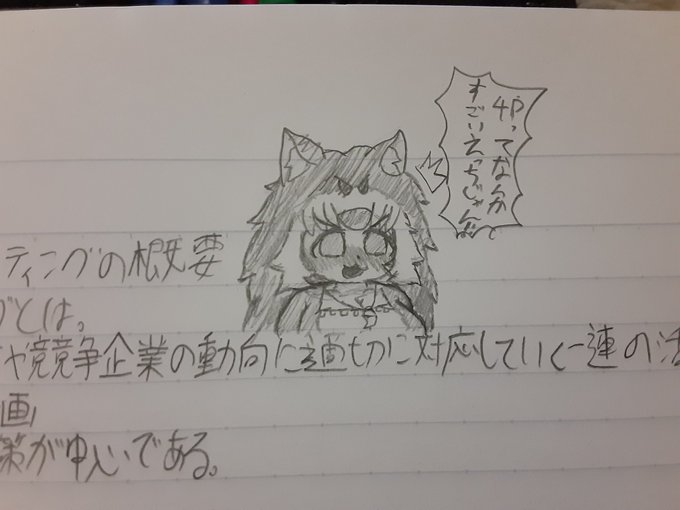 4Pってなんか
すごいえっちじゃん
ティングの概要
グとは。
や競争企業の動向に適切に対応していく一連の活
画
策が中心である。